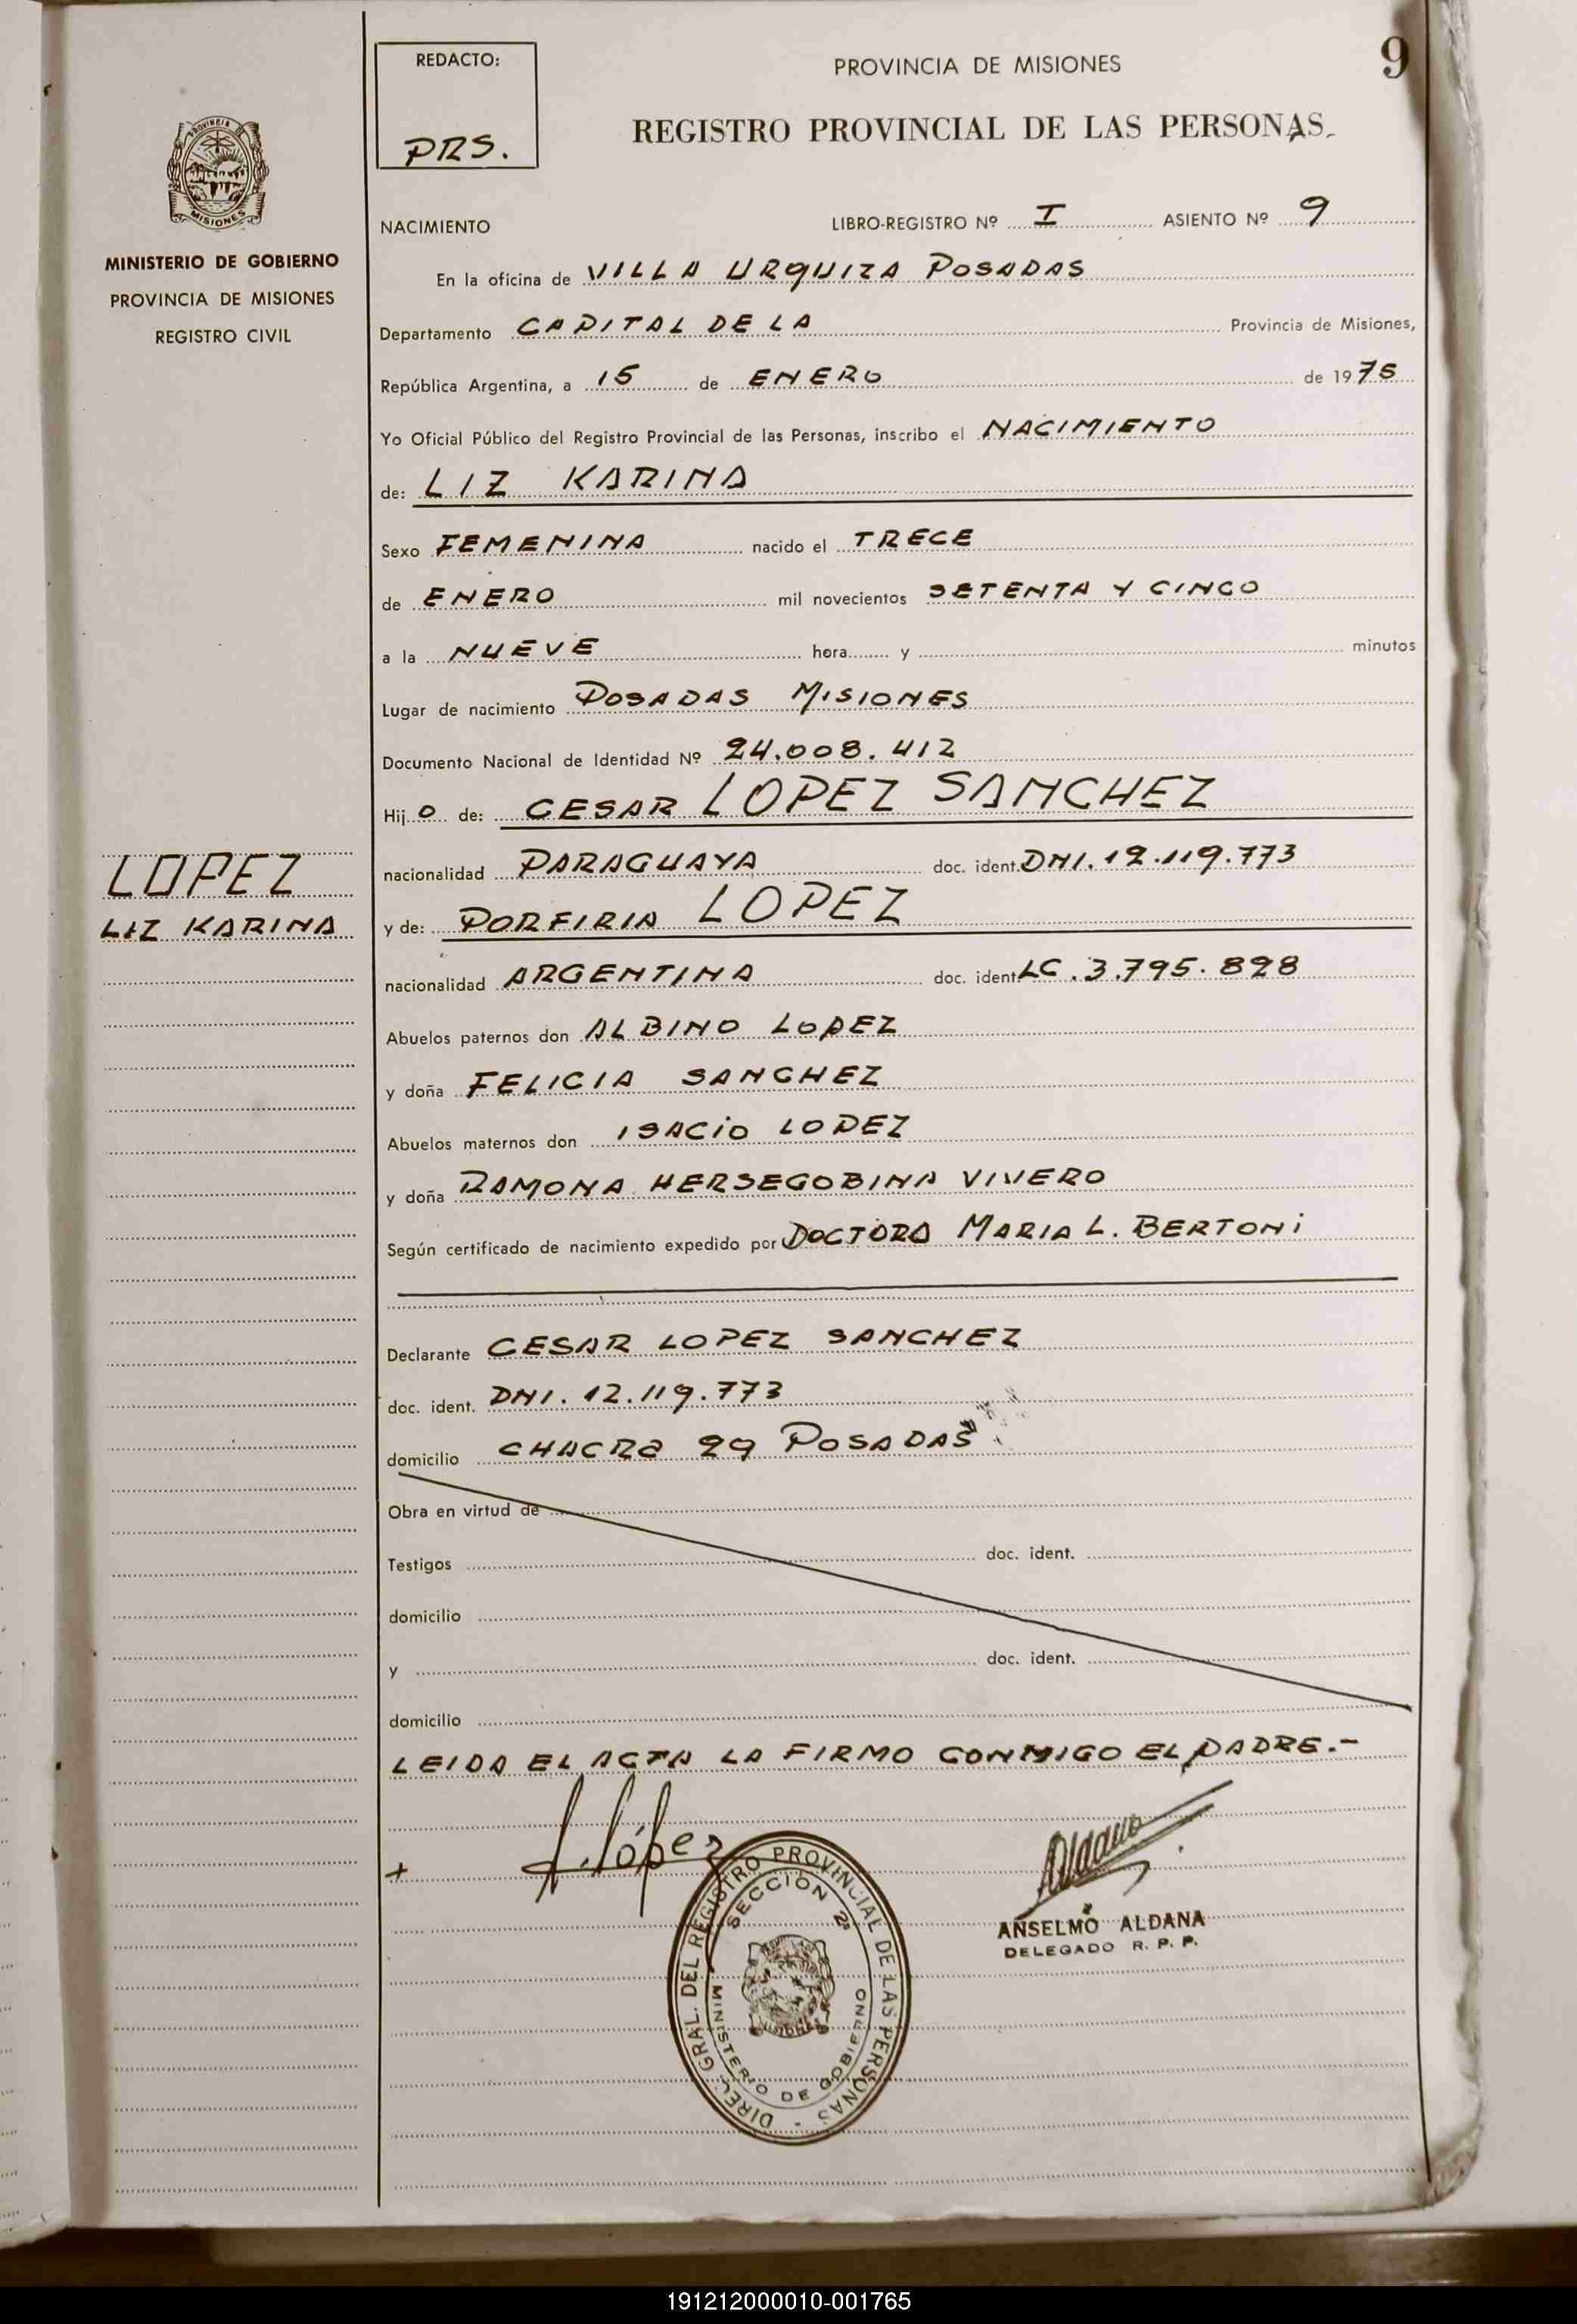 REDACTO:
PRS.
PROVINCIA DE MISIONES
9
REGISTRO PROVINCIAL DE LAS PERSONAS
PROVINCIA DE
MISIONES
MINISTERIO DE GOBIERNO
PROVINCIA DE MISIONES
REGISTRO CIVIL
NACIMIENTO LIBRO-REGISTRO Nº I ASIENTO Nº 9
En la oficina de VILLA URQUIZA POSADAS
Departamento CAPITAL DE LA Provincia de Misiones,
República Argentina, a 15 de ENERO de 1975
Yo Oficial Público del Registro Provincial de las Personas, inscribo el NACIMIENTO
de: LIZ KARINA
Sexo FEMENINA nacido el TRECE
de ENERO mil novecientos SETENTA Y CINCO
a la NUEVE hora y minutos
Lugar de nacimiento POSADAS MISIONES
Documento Nacional de Identidad Nº 24.008.412
Hijo de: CESAR LOPEZ SANCHEZ
LOPEZ
LIZ KARINA
nacionalidad PARAGUAYA doc. ident. DNI. 12.119.773
y de: PORFIRIA LOPEZ
nacionalidad ARGENTINA doc. ident. LC. 3.795.898
Abuelos paternos don ALBINO LOPEZ
y doña FELICIA SANCHEZ
Abuelos maternos don ISACIO LOPEZ
y doña RAMONA HERSEGOBINA VIVERO
Según certificado de nacimiento expedido por DOCTORA MARIA L. BERTONI
Declarante CESAR LOPEZ SANCHEZ
doc. ident. DNI. 12.119.773
domicilio CHACRA 29 POSADAS
Obra en virtud de
Testigos doc. ident.
domicilio
y doc. ident.
domicilio
LEIDA EL ACTA LA FIRMO CONMIGO EL PADRE.-
+ López
Aldana
ANSELMO ALDANA
DELEGADO R. P. P.
DIREC. GRAL. DEL REGISTRO PROVINCIAL DE LAS PERSONAS -
SECCION 2ª
MINISTERIO DE GOBIERNO
191212000010-001765